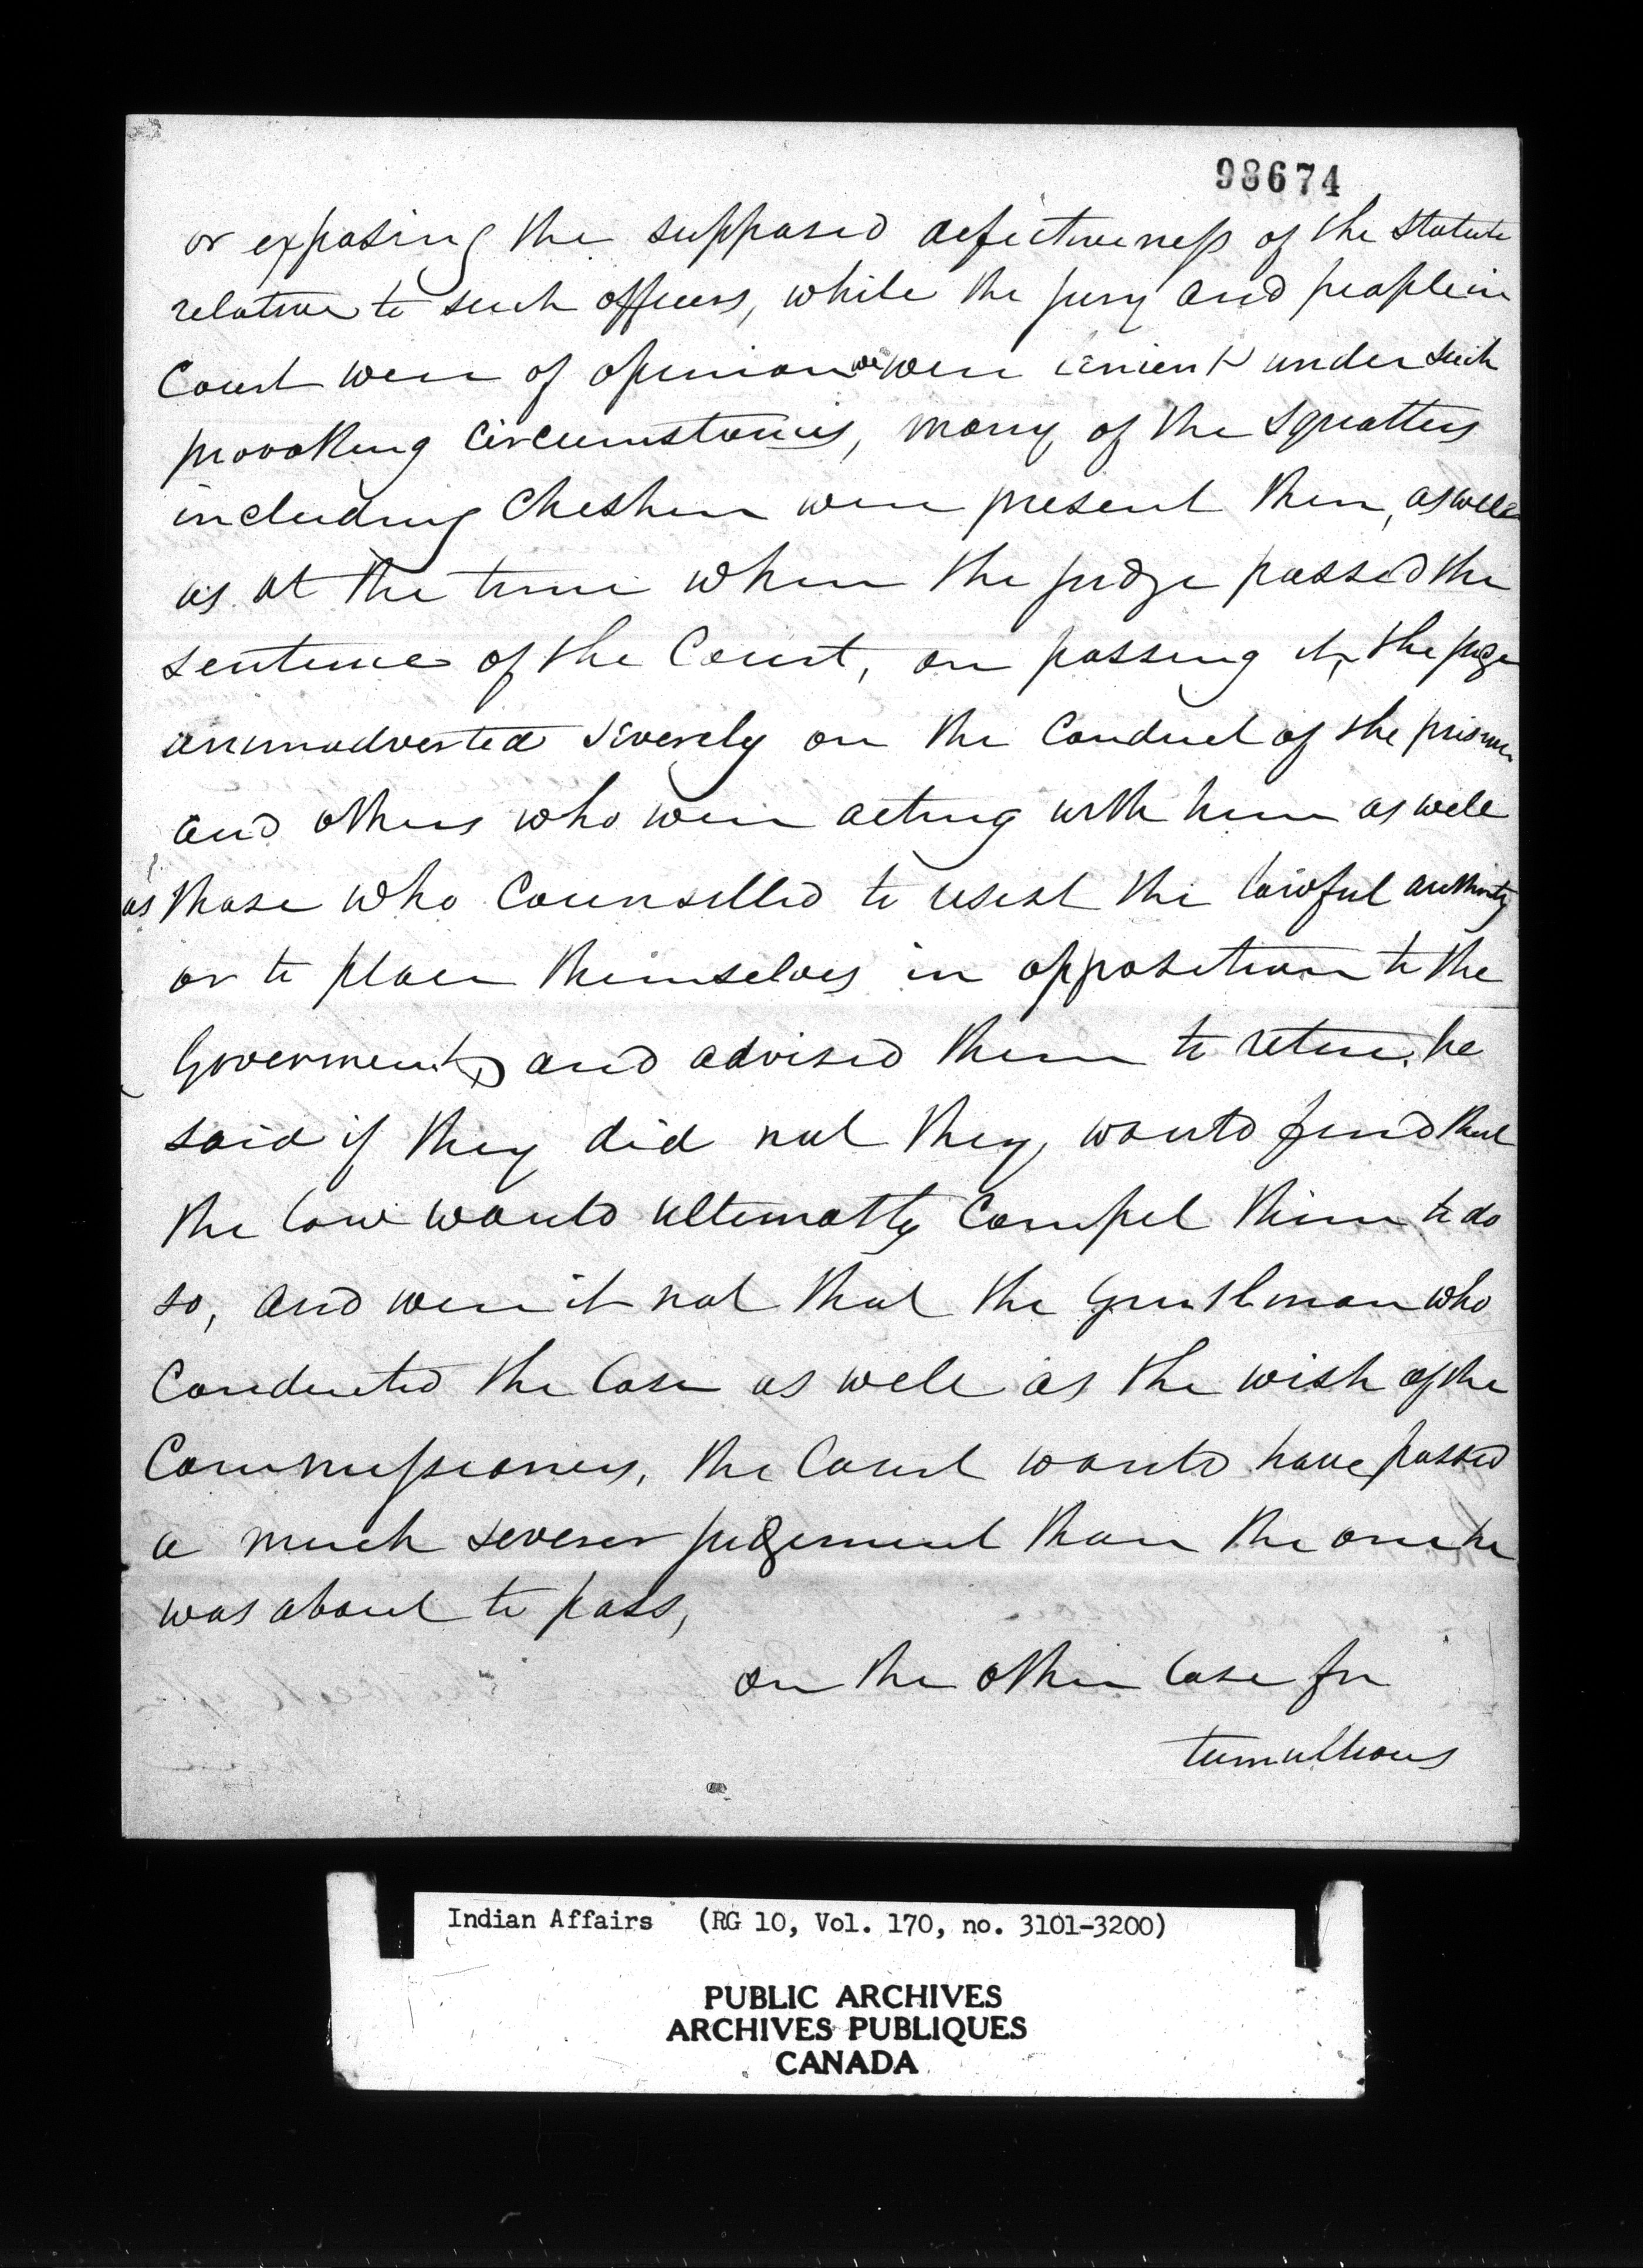 98674
or exposing the supposed defectiveness of the statute
relative to such officers, while the jury and people in
Court were of opinion we were lenient under such
provoking circumstances, many of the squatters
including Cheshire were present then, as well
as at the time when the judge passed the
sentence of the Court, on passing it, the judge
animadverted severely on the Conduct of the prisoner
and others who were acting with him as well
as those who Counselled to resist the lawful authority
or to place themselves in opposition to the
Goverment, and advised them to retire. he
said if they did not they would find that
the law would ultimatly Compel them to do
so, and were it not that the Gentleman who
Conducted the Case as well as the wish of the
Commissioners, the Court would have passed
a much severer judgement than the one he
was about to pass,
on the other Case for
tumultious
Indian Affairs (RG 10, Vol. 170, no. 3101-3200)
PUBLIC ARCHIVES
ARCHIVES PUBLIQUES
CANADA